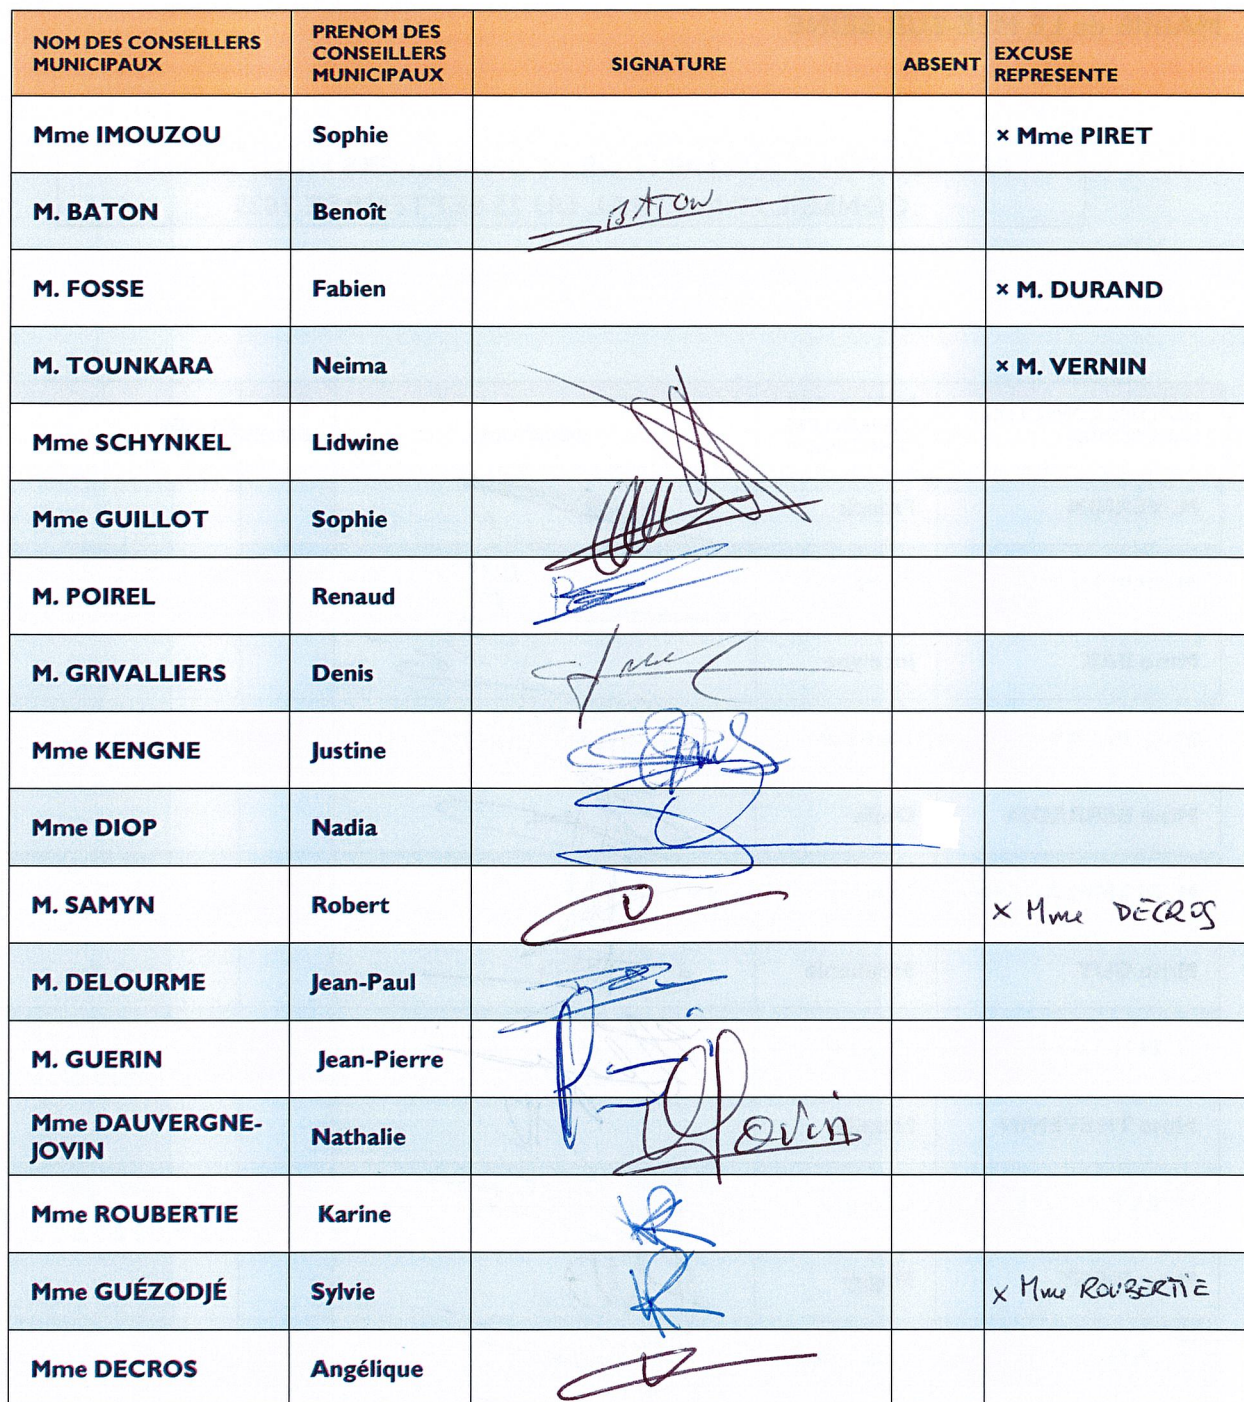 NOM DES CONSEILLERS MUNICIPAUX PRENOM DES CONSEILLERS MUNICIPAUX SIGNATURE ABSENT EXCUSE REPRESENTE
Mme IMOUZOU Sophie × Mme PIRET
M. BATON Benoît BATON
M. FOSSE Fabien × M. DURAND
M. TOUNKARA Neima × M. VERNIN
Mme SCHYNKEL Lidwine
Mme GUILLOT Sophie
M. POIREL Renaud
M. GRIVALLIERS Denis
Mme KENGNE Justine
Mme DIOP Nadia
M. SAMYN Robert × Mme DECROS
M. DELOURME Jean-Paul
M. GUERIN Jean-Pierre
Mme DAUVERGNE-JOVIN Nathalie Jovin
Mme ROUBERTIE Karine KR
Mme GUÉZODJÉ Sylvie KR × Mme ROUBERTIE
Mme DECROS Angélique